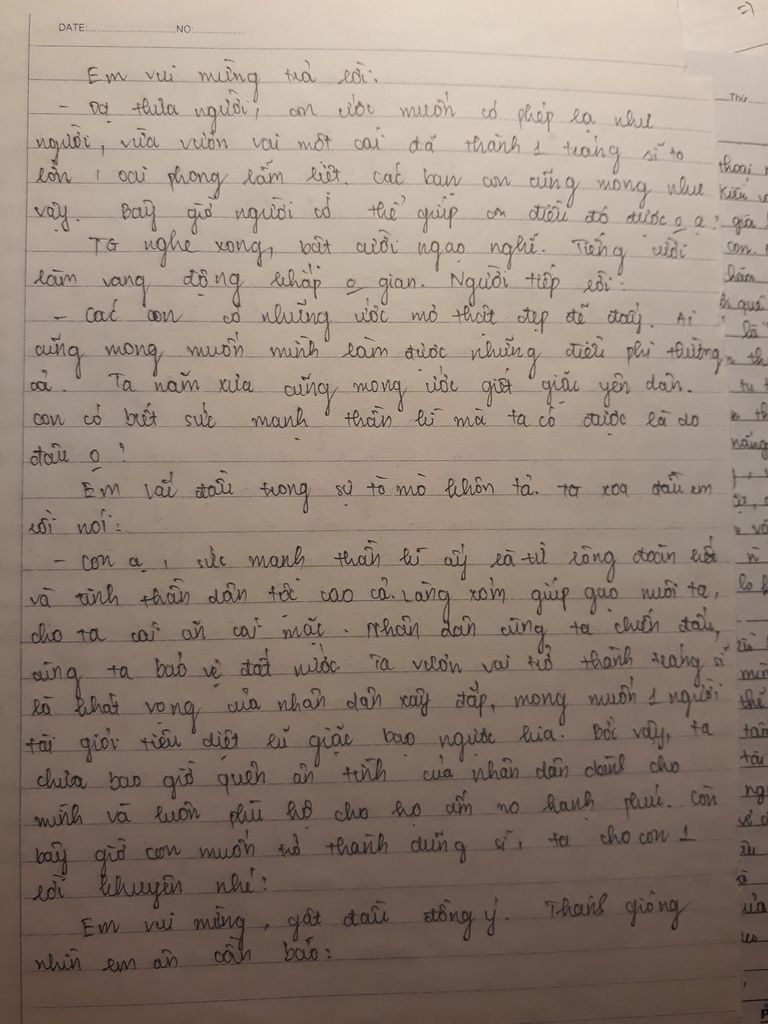 DATE:..............................NO:..................
Em vui mừng trả lời:
- Dạ thưa người, con ước muốn có phép lạ như
người, vừa vươn vai một cái đã thành 1 tráng sĩ to
lớn, oai phong lẫm liệt. Các bạn con cũng mong như
vậy. Bây giờ người có thể giúp con điều đó được o ạ?
TG nghe xong, bật cười ngạo nghễ. Tiếng cười
làm vang động khắp o gian. Người tiếp lời:
- Các con có những ước mơ thật đẹp đẽ đấy. Ai
cũng mong muốn mình làm được những điều phi thường
cả. Ta năm xưa cũng mong ước giết giặc yên dân.
con có biết sức mạnh thần kì mà ta có được là do
đâu o?
Em lắc đầu trong sự tò mò khôn tả. ta xoa đầu em
rồi nói:
- con ạ, sức mạnh thần kì ấy là từ lòng đoàn kết
và tinh thần dân tộc cao cả. Làng xóm giúp gạo nuôi ta,
cho ta cái ăn cái mặc. Nhân dân cùng ta chiến đấu,
cùng ta bảo vệ đất nước. Ta vươn vai trở thành tráng sĩ
là khát vọng của nhân dân xây đắp, mong muốn 1 người
tài giỏi tiêu diệt lũ giặc bạo ngược kia. Bởi vậy, ta
chưa bao giờ quên ân tình của nhân dân dành cho
mình và luôn phù hộ cho họ ấm no hạnh phúc. Còn
bây giờ con muốn trở thành dũng sĩ, ta cho con 1
lời khuyên nhé:
Em vui mừng, gật đầu đồng ý. Thánh gióng
nhìn em ân cần bảo:
Thứ.....
thoại
Kiều
con